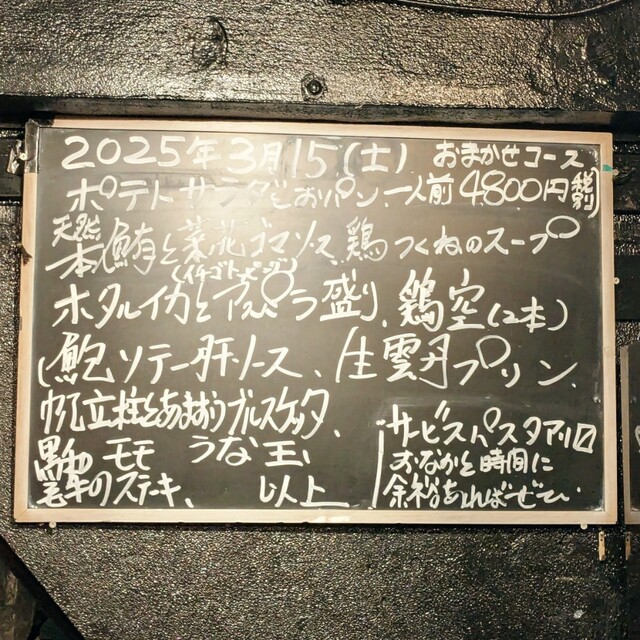 2025年3月15(土) おまかせコース、
ポテトサラダとおパン、一人前4,800円(税別)
天然本鮪と菜花ゴマソース、鶏つくねのスープ
(イチゴトッピング)
ホタルイカとアスパラ盛り、鶏空(2本)
(鮑ソテー肝ソース、生雲丹プリン、
帆立柱とあまおうブルスケッタ、
黒毛和牛のモモステーキ、うな玉、
以上
サービスパスタアリ〼
おなかと時間に
余裕あればぜひ